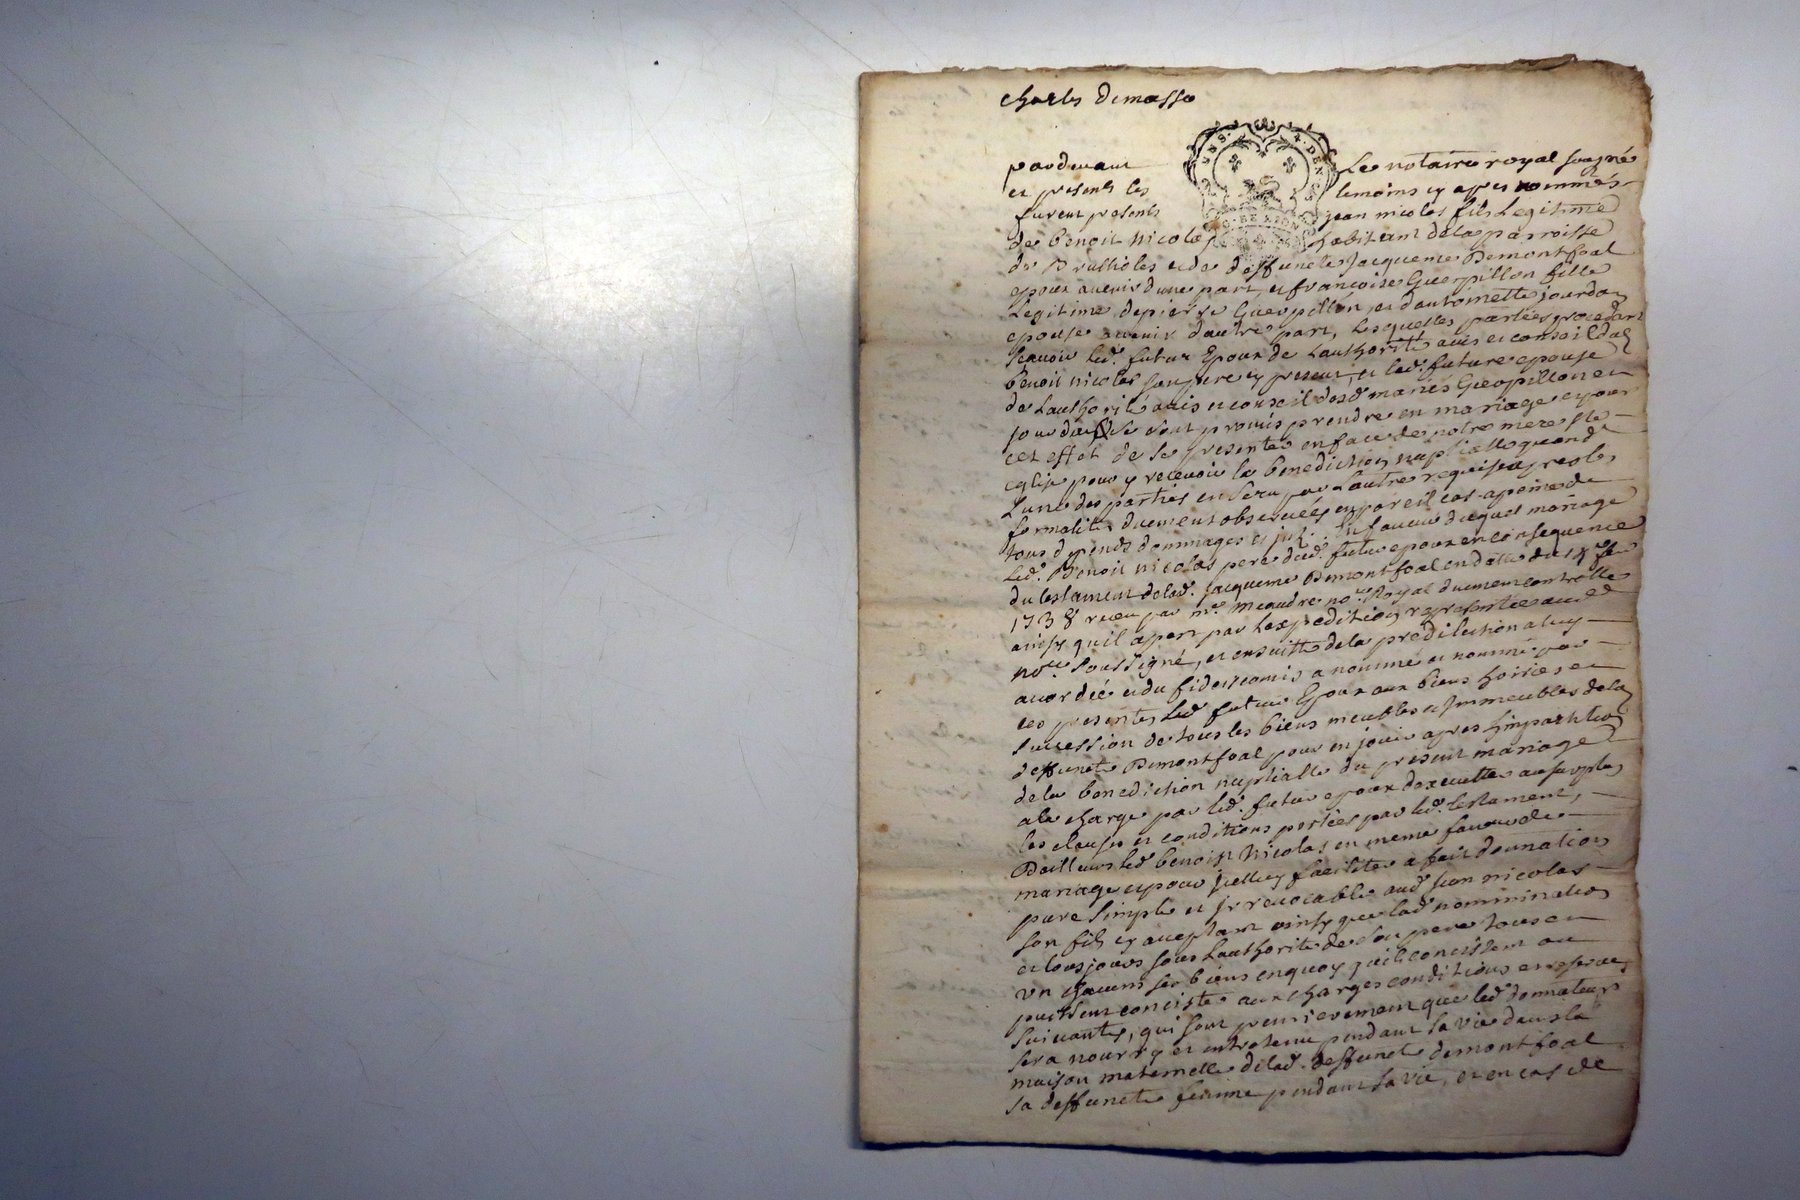 Charles Demasso
pardevant Le notaire royal soug.né
et presents les temoins cy apres nommés
furent presents jean nicolas fils Legitime
de benoit nicolas habitant dela parroisse
de Brussioles et de deffuncte jacqueme Demontfoal
epoux avenir d'une part, et francoise Guerpillon fille
Legitime de pierre Guerpillon, et dantoinette jourdan
epouse avenir dautre part, Lesquelles parties procedant
scavoir led. futur Epoux de Lauthorité avis et conseil dud.
benoit nicolas son pere cy present, et lad. future epouse
de Lauthorité avis et conseil desd. mariés Guerpillon et
jourdan se sont promis prendre en mariage et pour
cet effet de se presenter en face de notre mere Ste
eglise pour y recevoir la benediction nuptialle quand
Lune des parties en sera par Lautre requise apres les
formalités duement observées en pareil cas apeine de
tous depends dommages et int. En faveur duquel mariage
Led. Benoit nicolas pere dud. futur epoux en consequence
du testament delad. jacqueme Demontfoal en datte du 18e
1738 receu par me. meaudre nore. Royal duement controllé
ainsy quil apert par Lexpedition representée aud.
nore. soussigné, et en suitte dela predilection a luy
accordée et du fideicomis a nommé et nomme par
ces presentes led. futur Epoux aux biens hoiries et
succession de tous les biens meubles et Immeubles dela
deffuncte Demontfoal pour en jouir apres Limpartition
dela benediction nuptialle du present mariage
ala charge par led. futur epoux dexecutter au surplus
les clauses et conditions portées par led. testament,
Dailleurs led. benoist Nicolas en meme faveur de
mariage et pour jcelluy faciliter a fait donnation
pure simple et jrrevocable aud. jean nicolas
son fils cy acceptant ainsy que lad. nommination
et tousjours sous Lauthorité de son pere tous et
un chacuns ses biens en quoy quils concistent ou
puissent concister aux charges conditions et reserves
suivantes, qui sont premierement que led. donnateur
sera nourry et entretenu pendant sa vie dans la
maison maternelle delad. deffuncte demontfoal
sa deffuncte femme pendant sa vie, et en cas de